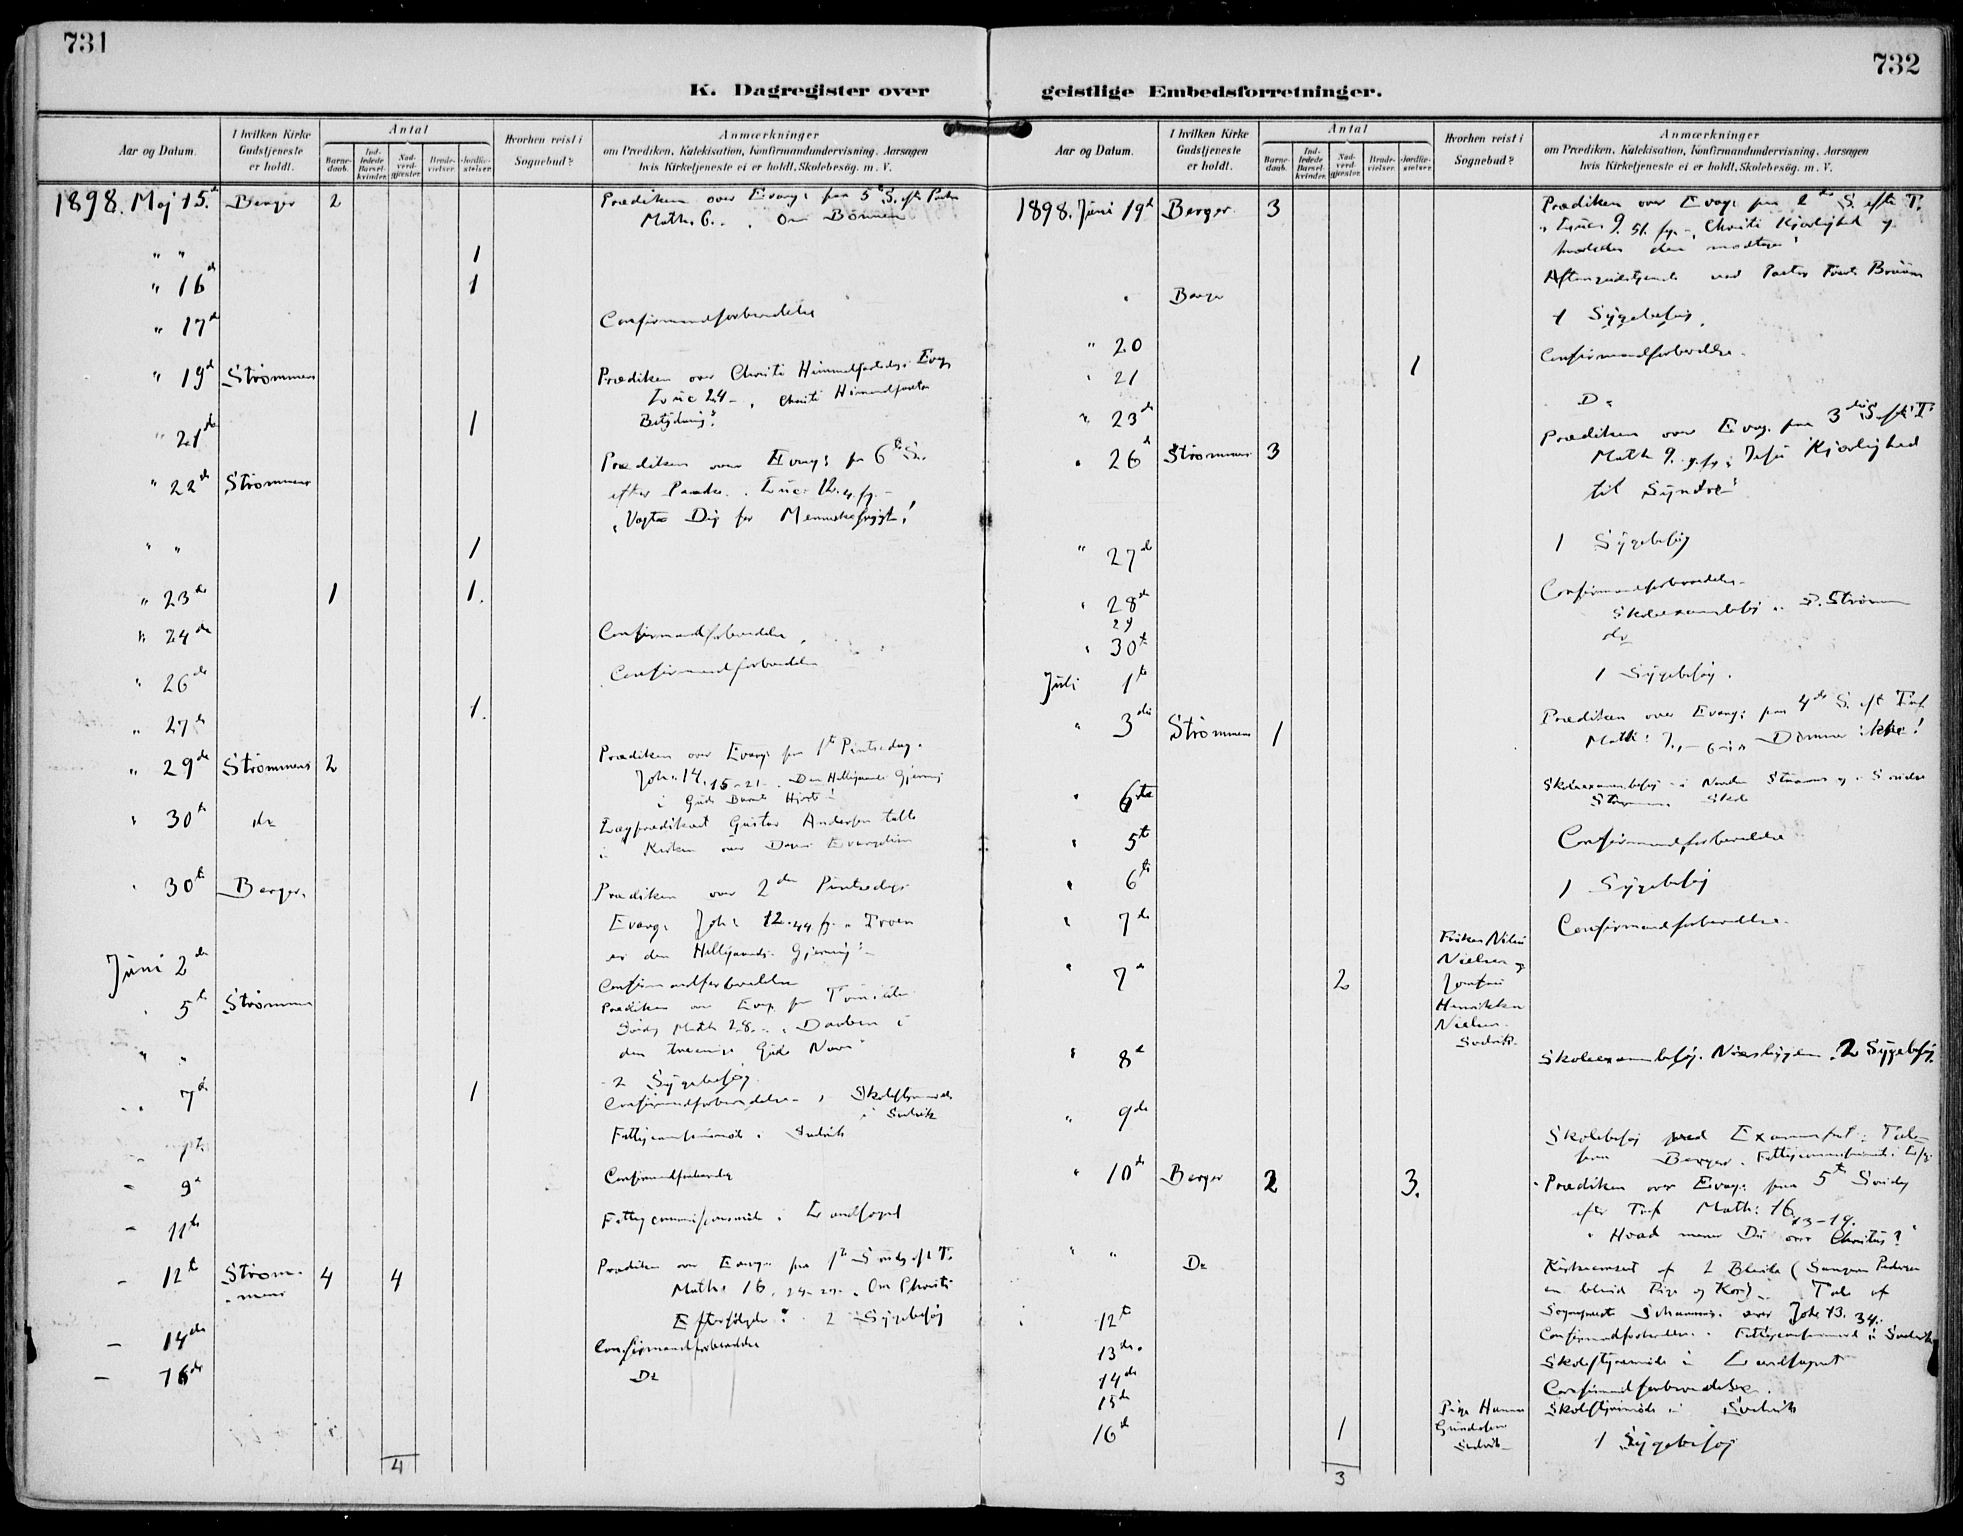 731
K. Dagregister over
Aar og Datum.
I hvilken Kirke Gudstjeneste er holdt.
Antal
Barnedaab.
Indledede Barselkvinder.
Nadverdgjæster.
Brudevielser.
Jordfæstelser.
Hvorhen reist i Sognebud?
Anmærkninger
om Prædiken, Katekisation, Konfirmandundervisning, Aarsagen
hvis Kirketjeneste ei er holdt, Skolebesög. m. V.
1898. Maj 15. Berger 2 Prædiken over Evang: paa 5te S. eft. Paaske
Math. 6. Om Bönnen
" " 1
" 16de 1
" 17de Confirmandforberedelse
" 19de Strömmen Prædiken over Christi Himmelfartsdags Evg.
Luc 24 - "Christi Himmelfarts
Betydning"
" 21de 1
" 22de Strömmen Prædiken over Evang: paa 6te S.
efter Paaske. Luc. 12.4 fg. -
"Vogter Dig for Menneskefrygt"!
" " 1
" 23de 1 1.
" 24de Confirmandforberedelse
" 26de Confirmandforberedelse
" 27de 1.
" 29de Strömmen 2 Prædiken over Evang: paa 1te Pintsedag.
Joh. 14. 15-21. Den Helligaands Gjerning
i Guds Barns Hjerte
" 30te do Lægprædikant Gustav Andersen talte
i Kirken over Dagens Evangelium
" 30te Berger. Prædiken over 2den Pintsedags
Evang. Joh: 12.44 fg. "Troen
er den Helligaands Gjerning"
Juni 2de Confirmandforberedelse
" 5te Strömmen Prædiken over Evang: paa Trinitatis
Sönd. Math 28. "Daaben i
den treenige Guds Navn"
" " 2 Sygebesög
" 7de 1 Confirmandforberedelse. Skolestyremöde
i Svelvik
Fattigcommissionsmöde i Svelvik
9de Confirmandforberedelse
11te Fattigcommissionsmöde i Landfaget
12te Strömmen 4 4 Prædiken over Evang. paa 1te Sönd. eft T.
Math. 16. 24-27. "Om Christi
Efterfölgelse". 2 Sygebesög
14de Confirmandforberedelse
16de Do
4
732
geistlige Embedsforretninger.
Aar og Datum.
I hvilken Kirke Gudstjeneste er holdt.
Antal
Barnedaab.
Indledede Barselkvinder.
Nadverdgjæster.
Brudevielser.
Jordfæstelser.
Hvorhen reist i Sognebud?
Anmærkninger
om Prædiken, Katekisation, Konfirmandundervisning, Aarsagen
hvis Kirketjeneste ei er holdt, Skolebesög. m. V.
1898. Juni 19de Berger. 3 Prædiken over Evang: paa 2den S. efter T.
Lucas 9. 51. fg. - "Christi Kjærlighed og
hvorledes den modtages"
" Berger Aftengudstjeneste ved Pastor
1 Sygebesög
" 20 Confirmandforberedelse.
" 21 1
" 23de Do
" 26de Strömmen 3 Prædiken over Evang. paa 3die S. eft T.
Math 9. 9. fg. "Jesu Kjærlighed
til Syndere"
" 27de 1 Sygebesög
" 28de Confirmandforberedelse
29 Skoleexamensbesög i S. Strömm
" 30te do
Juli 1te 1 Sygebesög.
" 3die Strömmen 1 Prædiken over Evang: paa 4de S. eft Trf
Math: 7. "Dömmer ikke!
" 6te Skoleexamensbesög i Nordre Strömm og i Söndre
Strömm Skole
" 5te Confirmandforberedelse
" 6te 1 Sygebesög
" 7de Confirmandforberedelse.
" 7de 2 Fröken
Nielsen og
Jomfru
Henrikke
Nielsen.
Svelvik.
" 8de Skoleexambesög. Næsbyggen. 2 Sygebesög.
" 9de Skolebesög med Examensfest. Tale
Berger. Fattigcommissionsmöde
" 10de Berger 2 3. Prædiken over Evang: paa 5te Söndg
efter Tref Math: 16. 13-19.
"Hvad mener Du over Christus?"
" " Do Kirkeconcert af 2 Blinde (
en blind Pige og Kor). Tale af
Sogneprest Johannes. over Joh: 13. 34.
" 12te Confirmandforberedelse. Fattigcommissionsmöde i Svelvik
13de. Skolestyremöde i Landfaget
14de Confirmandforberedelse.
15de Skolestyremöde i Svelvik
16de 1 Pige Hanna
Gundersen
Svelvik 1 Sygebesög
3